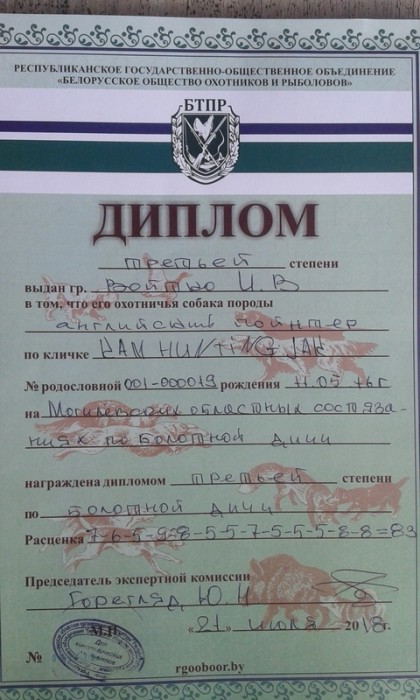 РЕСПУБЛИКАНСКОЕ ГОСУДАРСТВЕННО-ОБЩЕСТВЕННОЕ ОБЪЕДИНЕНИЕ
«БЕЛОРУССКОЕ ОБЩЕСТВО ОХОТНИКОВ И РЫБОЛОВОВ»
БТПР
ДИПЛОМ
третьей степени
выдан гр. Войтью И. В
в том, что его охотничья собака породы
английский пойнтер
по кличке HUNTING JAK
№ родословной 001-000019 рождения 11.05 16г
на Могилевских областных состяза-
ниях по болотной дичи
награждена дипломом третьей степени
по болотной дичи
Расценка 7-6-5-9-8-5-5-7-5-5-5-8-8=83
Председатель экспертной комиссии
Горегляд Ю. Н
М.П.
«21» июля 2018г.
№
rgooboor.by